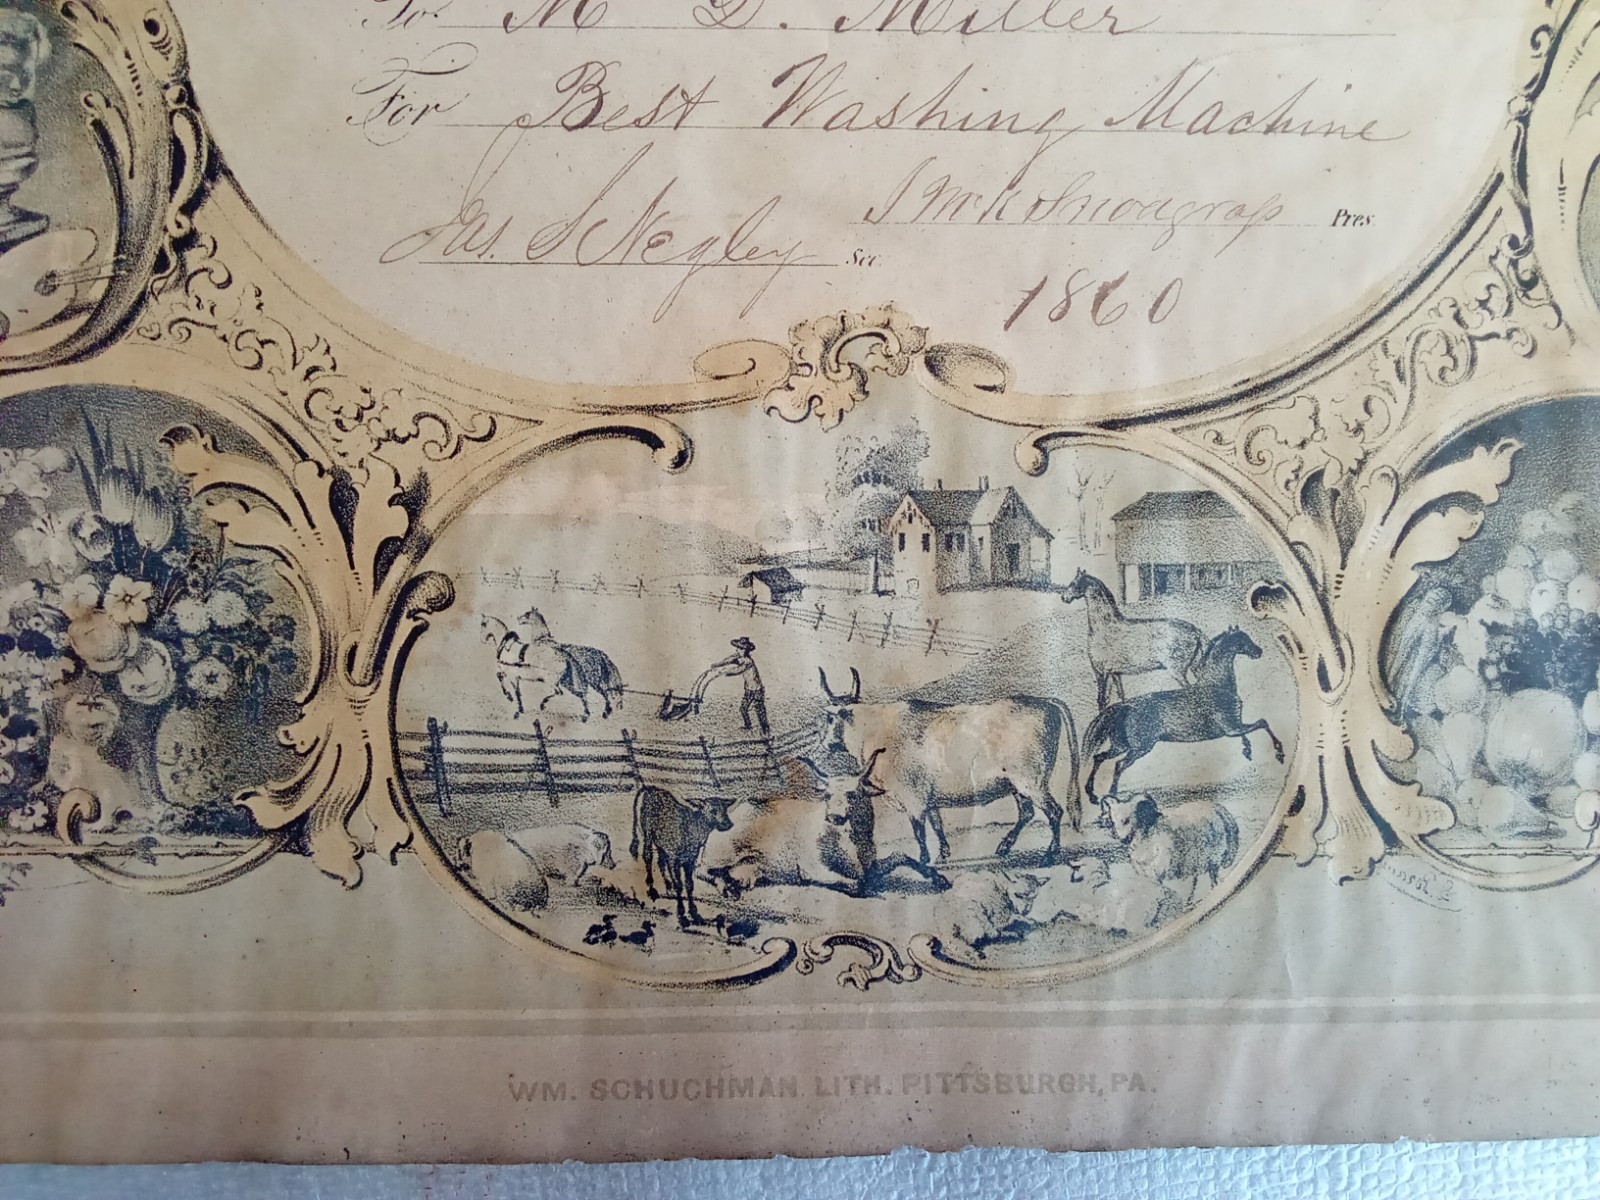 To. M D. Miller
For Best Washing Machine
J McK Snodgrass Pres.
Jas. S Negley Sec.
1860
WM. SCHUCHMAN. LITH. PITTSBURGH, PA.